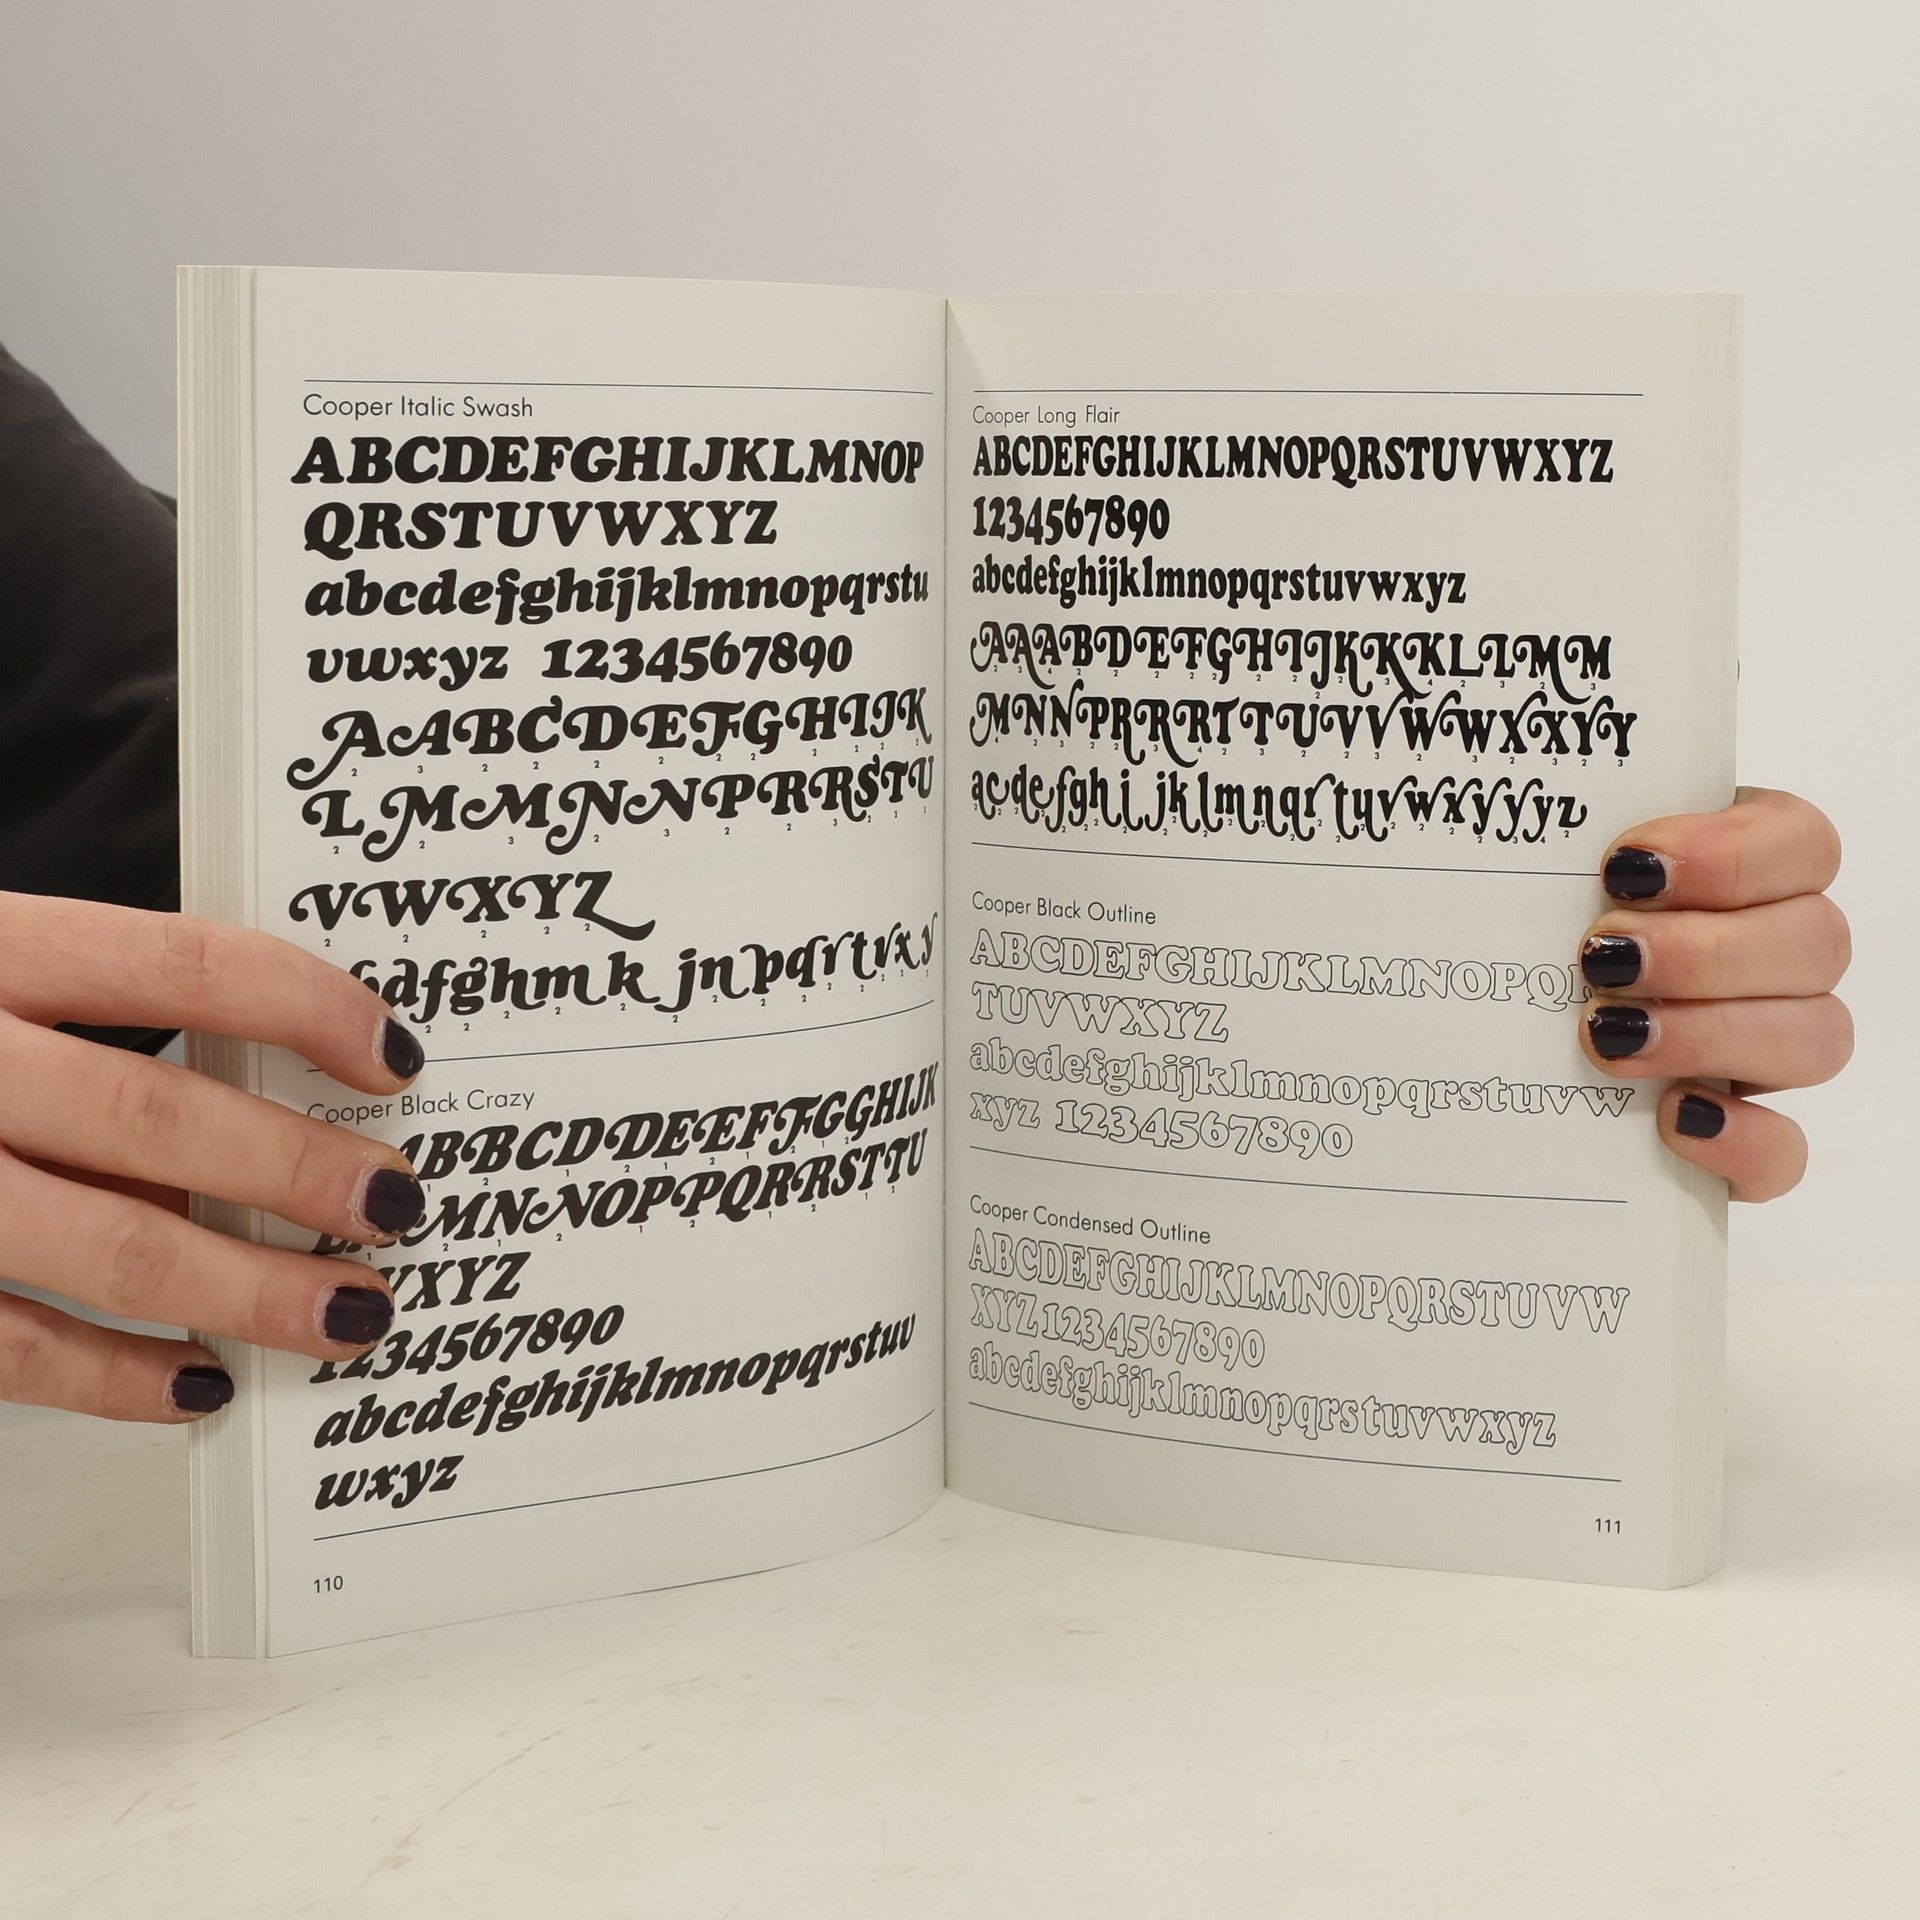 Cooper Italic Swash
ABCDEFGHIJKLMNOP
QRSTUVWXYZ
abcdefghijklmnopqrstu
vwxyz 1234567890
AABCDEFGHIJK
LMMNNPRRSTU
VWXYZ
dfghmk jnpqrtvxy
Cooper Black Crazy
BBCDDEEFFGGHIJK
MNNOPPQRRSTTU
XYZ
1234567890
abcdefghijklmnopqrstuv
wxyz
110
Cooper Long Flair
ABCDEFGHIJKLMNOPQRSTUVWXYZ
1234567890
abcdefghijklmnopqrstuvwxyz
AAABDEFGHIJKKKLLMM
MNNPRRRTTUVVWWXXYY
acdefghijklmnqrtuvwxyyyz
Cooper Black Outline
ABCDEFGHIJKLMNOPQ
TUVWXYZ
abcdefghijklmnopqrstuvw
xyz 1234567890
Cooper Condensed Outline
ABCDEFGHIJKLMNOPQRSTUVW
XYZ1234567890
abcdefghijklmnopqrstuvwxyz
111